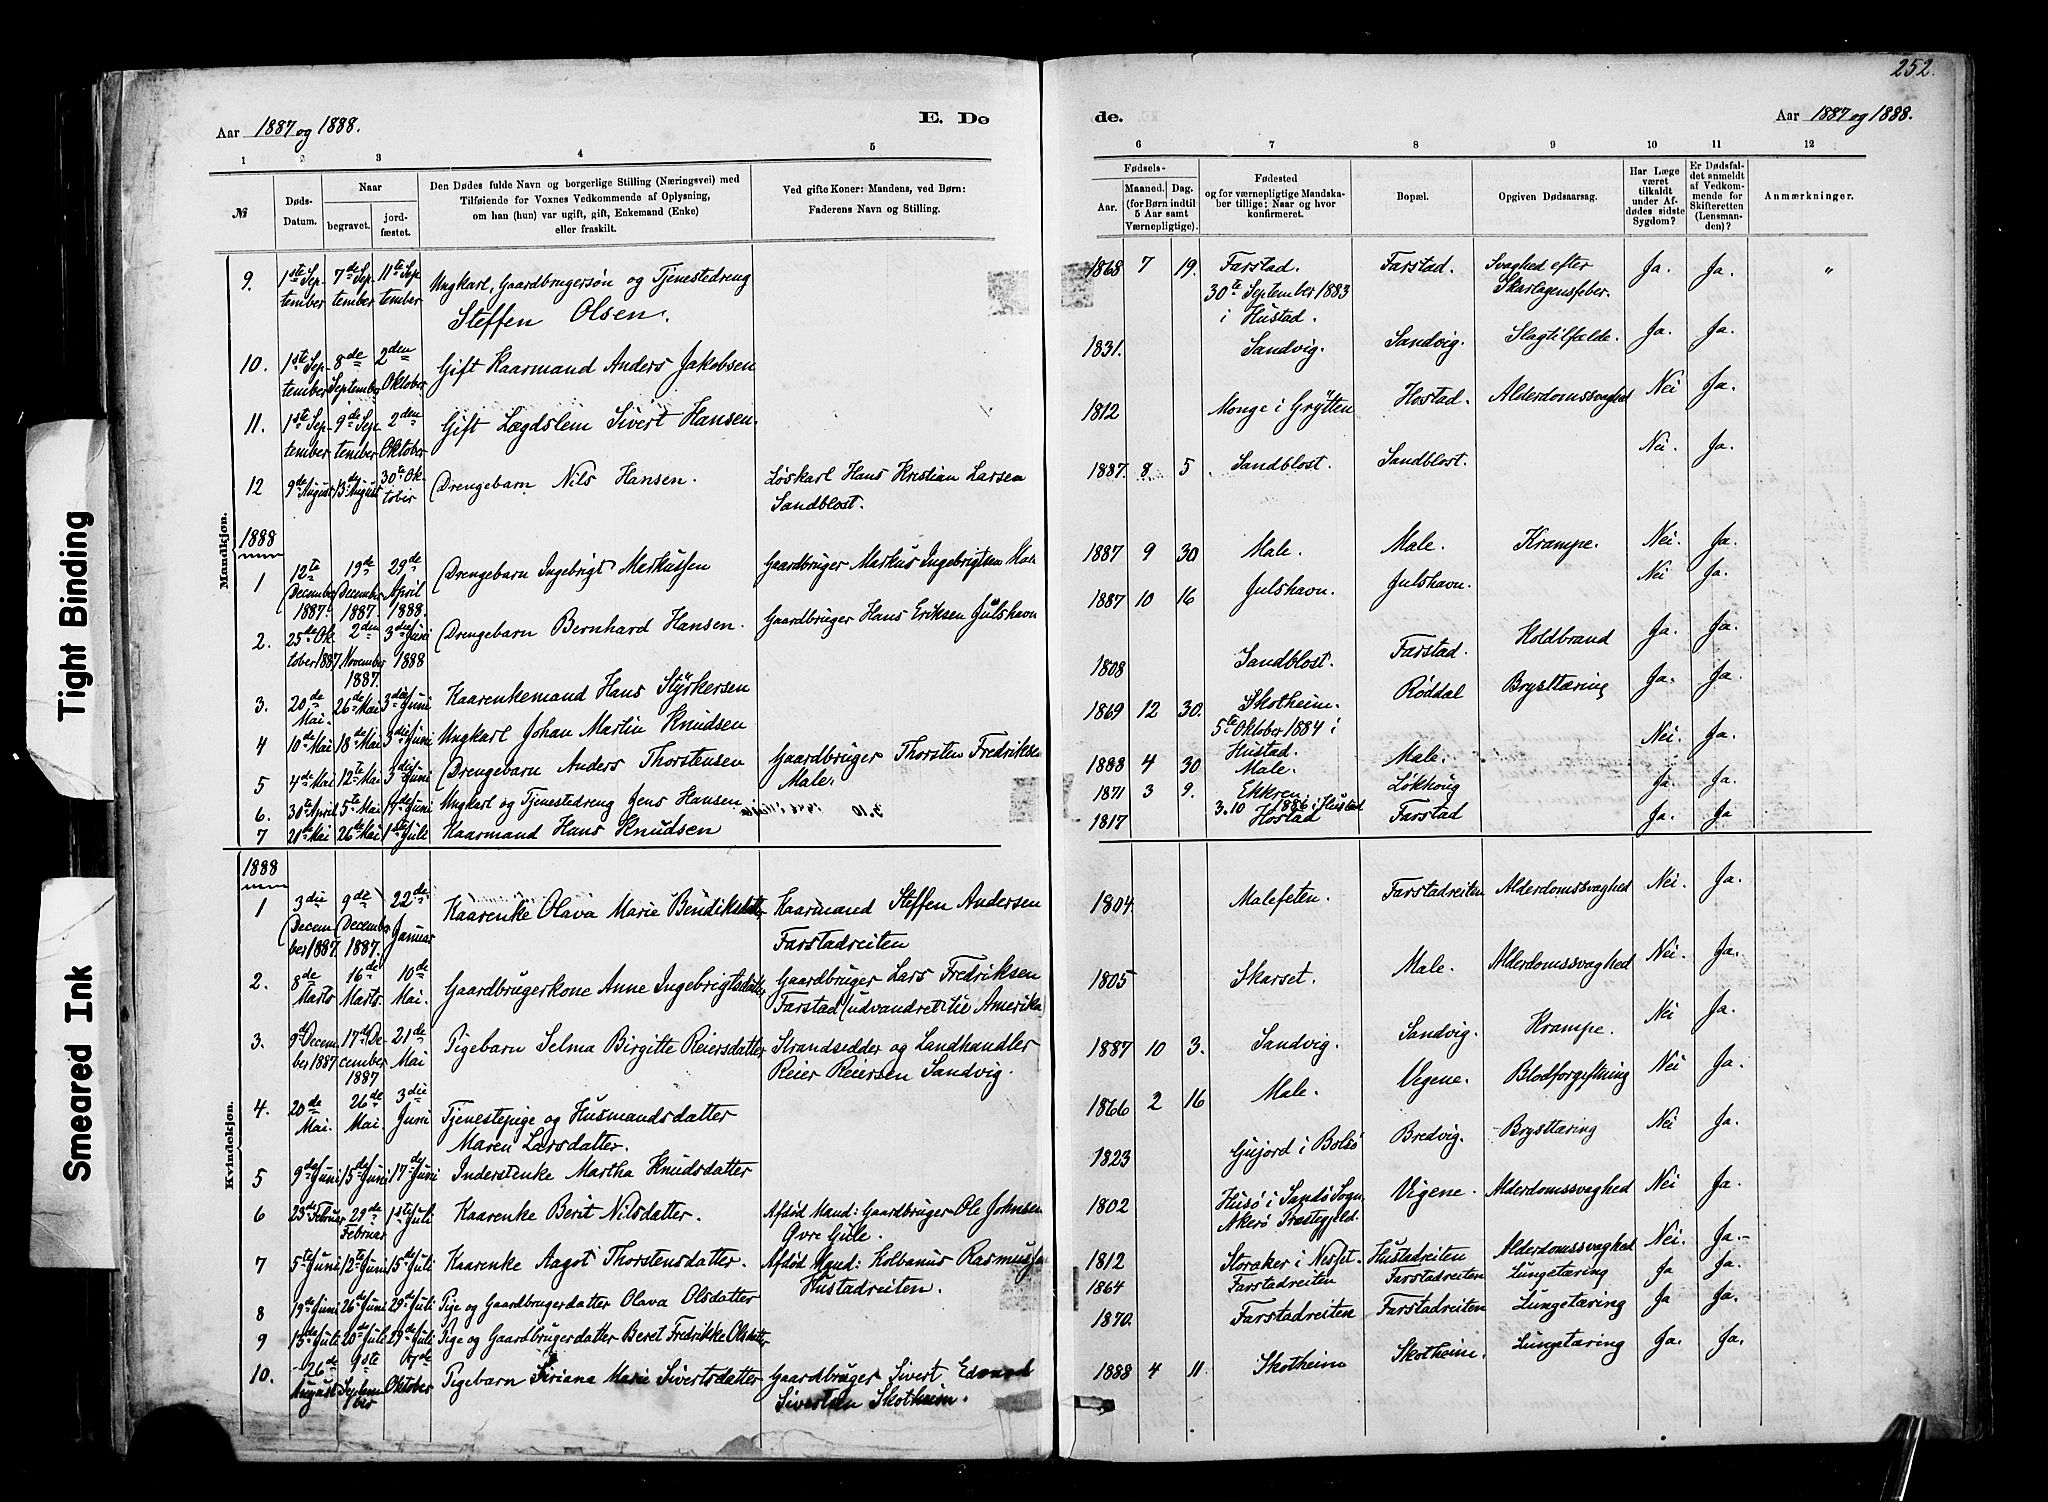 252.
Aar 1887 og 1888.
E. Dø
de.
Aar 1887 og 1888.
1 2 3 4 5
6 7 8 9 10 11 12
№
Døds-
Datum.
Naar
begravet.
jord-
fæstet.
Den Dødes fulde Navn og borgerlige Stilling (Næringsvei) med
Tilføiende for Voxnes Vedkommende af Oplysning,
om han (hun) var ugift, gift, Enkemand (Enke)
eller fraskilt.
Ved gifte Koner: Mandens, ved Børn:
Faderens Navn og Stilling.
Fødsels-
Aar.
Maaned. Dag.
(for Børn indtil
5 Aar samt
Værnepligtige).
Fødested
og for værnepligtige Mandska-
ber tillige: Naar og hvor
konfirmeret.
Bopæl.
Opgiven Dødsaarsag.
Har Læge
været
tilkaldt
under Af-
dødes sidste
Sygdom?
Er Dødsfal-
det anmeldt
af Vedkom-
mende for
Skifteretten
(Lensman-
den)?
Anmærkninger.
Mandkjøn.
9. 1ste Sep- 7de Sep- 11te Sep-
tember tember tember
Ungkarl, Gaardbrugersøn og Tjenestedreng
Steffen Olsen.
1868 7 19. Farstad. Farstad. Svaghed efter Ja. Ja. "
30te September 1883 Skarlagensfeber.
i Hustad.
10. 1ste Sep- 8de 2den
tember September Oktober
Gift Kaarmand Anders Jakobsen
1831. Sandvig. Sandvig. Slagtilfælde. Ja. Ja.
11. 1ste Sep- 9de Sep- 2den
tember tember Oktober
Gift Lægdslem Sivert Hansen.
1812 Monge i Grytten Hostad. Alderdomssvaghed Nei Ja.
12 9de August 13de August 30te Ok-
tober
Drengebarn Nils Hansen. Løskarl Hans Kristian Larsen
Sandblost.
1887. 8 5 Sandblost. Sandblost. Nei. Ja.
1888
1 12te 19de 29de
December December April
1887. 1887 1888.
Drengebarn Ingebrigt Markussen Gaardbruger Markus Ingebrigtsen
1887 9 30 Male. Male. Krampe. Nei. Ja.
2. 25de Ok- 2den 3die Juni
tober 1887 November 1888
1887.
Drengebarn Bernhard Hansen. Gaardbruger Hans Eriksen Julshavn
1887 10 16 Julshavn. Julshavn. Nei Ja.
3. 20de 26de Mai 3die Juni
Mai.
Kaarenkemand Hans Styrkersen
1808 Sandblost. Farstad. Koldbrand Ja. Ja.
4 10de Mai 18de Mai 3die Juni Ungkarl Johan Martin Knudsen
1869 12 30. Skotheim. Røddal Brysttæring Ja. Ja.
5te Oktober 1884 i
Hustad.
5 4de Mai 12te Mai 3die Juni Drengebarn Anders Thorstensen Gaardbruger Thorsten Fredriksen
Male.
1888 4 30 Male. Male. Nei. Ja.
6. 30te April 5te Mai Juni Ungkarl og Tjenestedreng Jens Hansen
1871 3 9. Ekkren. Løkhoug Ja. Ja.
3.10 1886 i Hustad
7 21de Mai 26de Mai 1ste Juli Kaarmand Hans Knudsen
1817 Hostad Farstad Ja. Ja
Kvindekjøn.
1888
1 3die 9de 22de
Decem- December Januar
ber 1887 1887.
Kaarenke Olava Marie Bendiksdatter Kaarmand Steffen Andersen
Farstadreiten
1804. Malefeten. Farstadreiten Alderdomssvaghed Nei. Ja.
2. 8de 16de 10de
Marts Marts. Mai.
Gaardbrugerkone Anne Ingebrigtsdatter Gaardbruger Lars Fredriksen
Farstad (udvandret til Amerika
1805 Skarset. Male. Alderdomssvaghed Nei. Ja.
3. 9de Decem- 17de De- 21de
ber 1887 cember Mai
1887
Pigebarn Selma Birgitte Reiersdatter Strandsidder og Landhandler
Reier Reiersen Sandvig.
1887 10 3. Sandvig. Sandvig. Krampe. Nei Ja.
4. 20de 26de 3die
Mai. Mai. Juni
Tjenestepige og Husmandsdatter
Maren Larsdatter.
1866 2 16 Male. Vegene. Blodforgiftning Nei Ja.
5 9de Juni 15de Juni 17de Juni Inderstenke Martha Knudsdatter
1823 Gujord i Bolsø Bredvig. Brysttæring Nei Ja.
6 23de Februar 29de 1ste Juli
Februar
Kaarenke Berit Nilsdatter. Afdød Mand: Gaardbruger Ole Johnsen
Øvre Gule.
1802 Husø i Sandø Sogn, Vigene. Alderdomssvaghed Nei Ja.
Akerø Præstegjeld.
7 5te Juni 12te Juni 15de Juli Kaarenke Aagot Thorstensdatter. Afdød Mand: Kolbanus Rasmussen
Hustadreiten.
1812 Storaker i Nesset. Hustadreiten Alderdomssvaghed Nei. Ja.
8 19de Juni 26de Juni 29de Juli Pige og Gaardbrugerdatter Olava Olsdatter
1864 Farstadreiten Farstadreiten Lungetæring Ja Ja.
9 15de Juli 20de Juli 29de Juli Pige og Gaardbrugerdatter Beret Fredrikke Olsdatter
1870. Farstadreiten Farstadreiten Lungetæring Ja Ja.
10. 26de 9de
August Septem- Oktober
ber
Pigebarn Siriana Marie Sivertsdatter Gaardbruger Sivert Edvard
Sivertsen Skotheim.
1888 4 11. Skotheim Skotheim. Lungetæring Ja. Ja.
Tight Binding
Smeared Ink